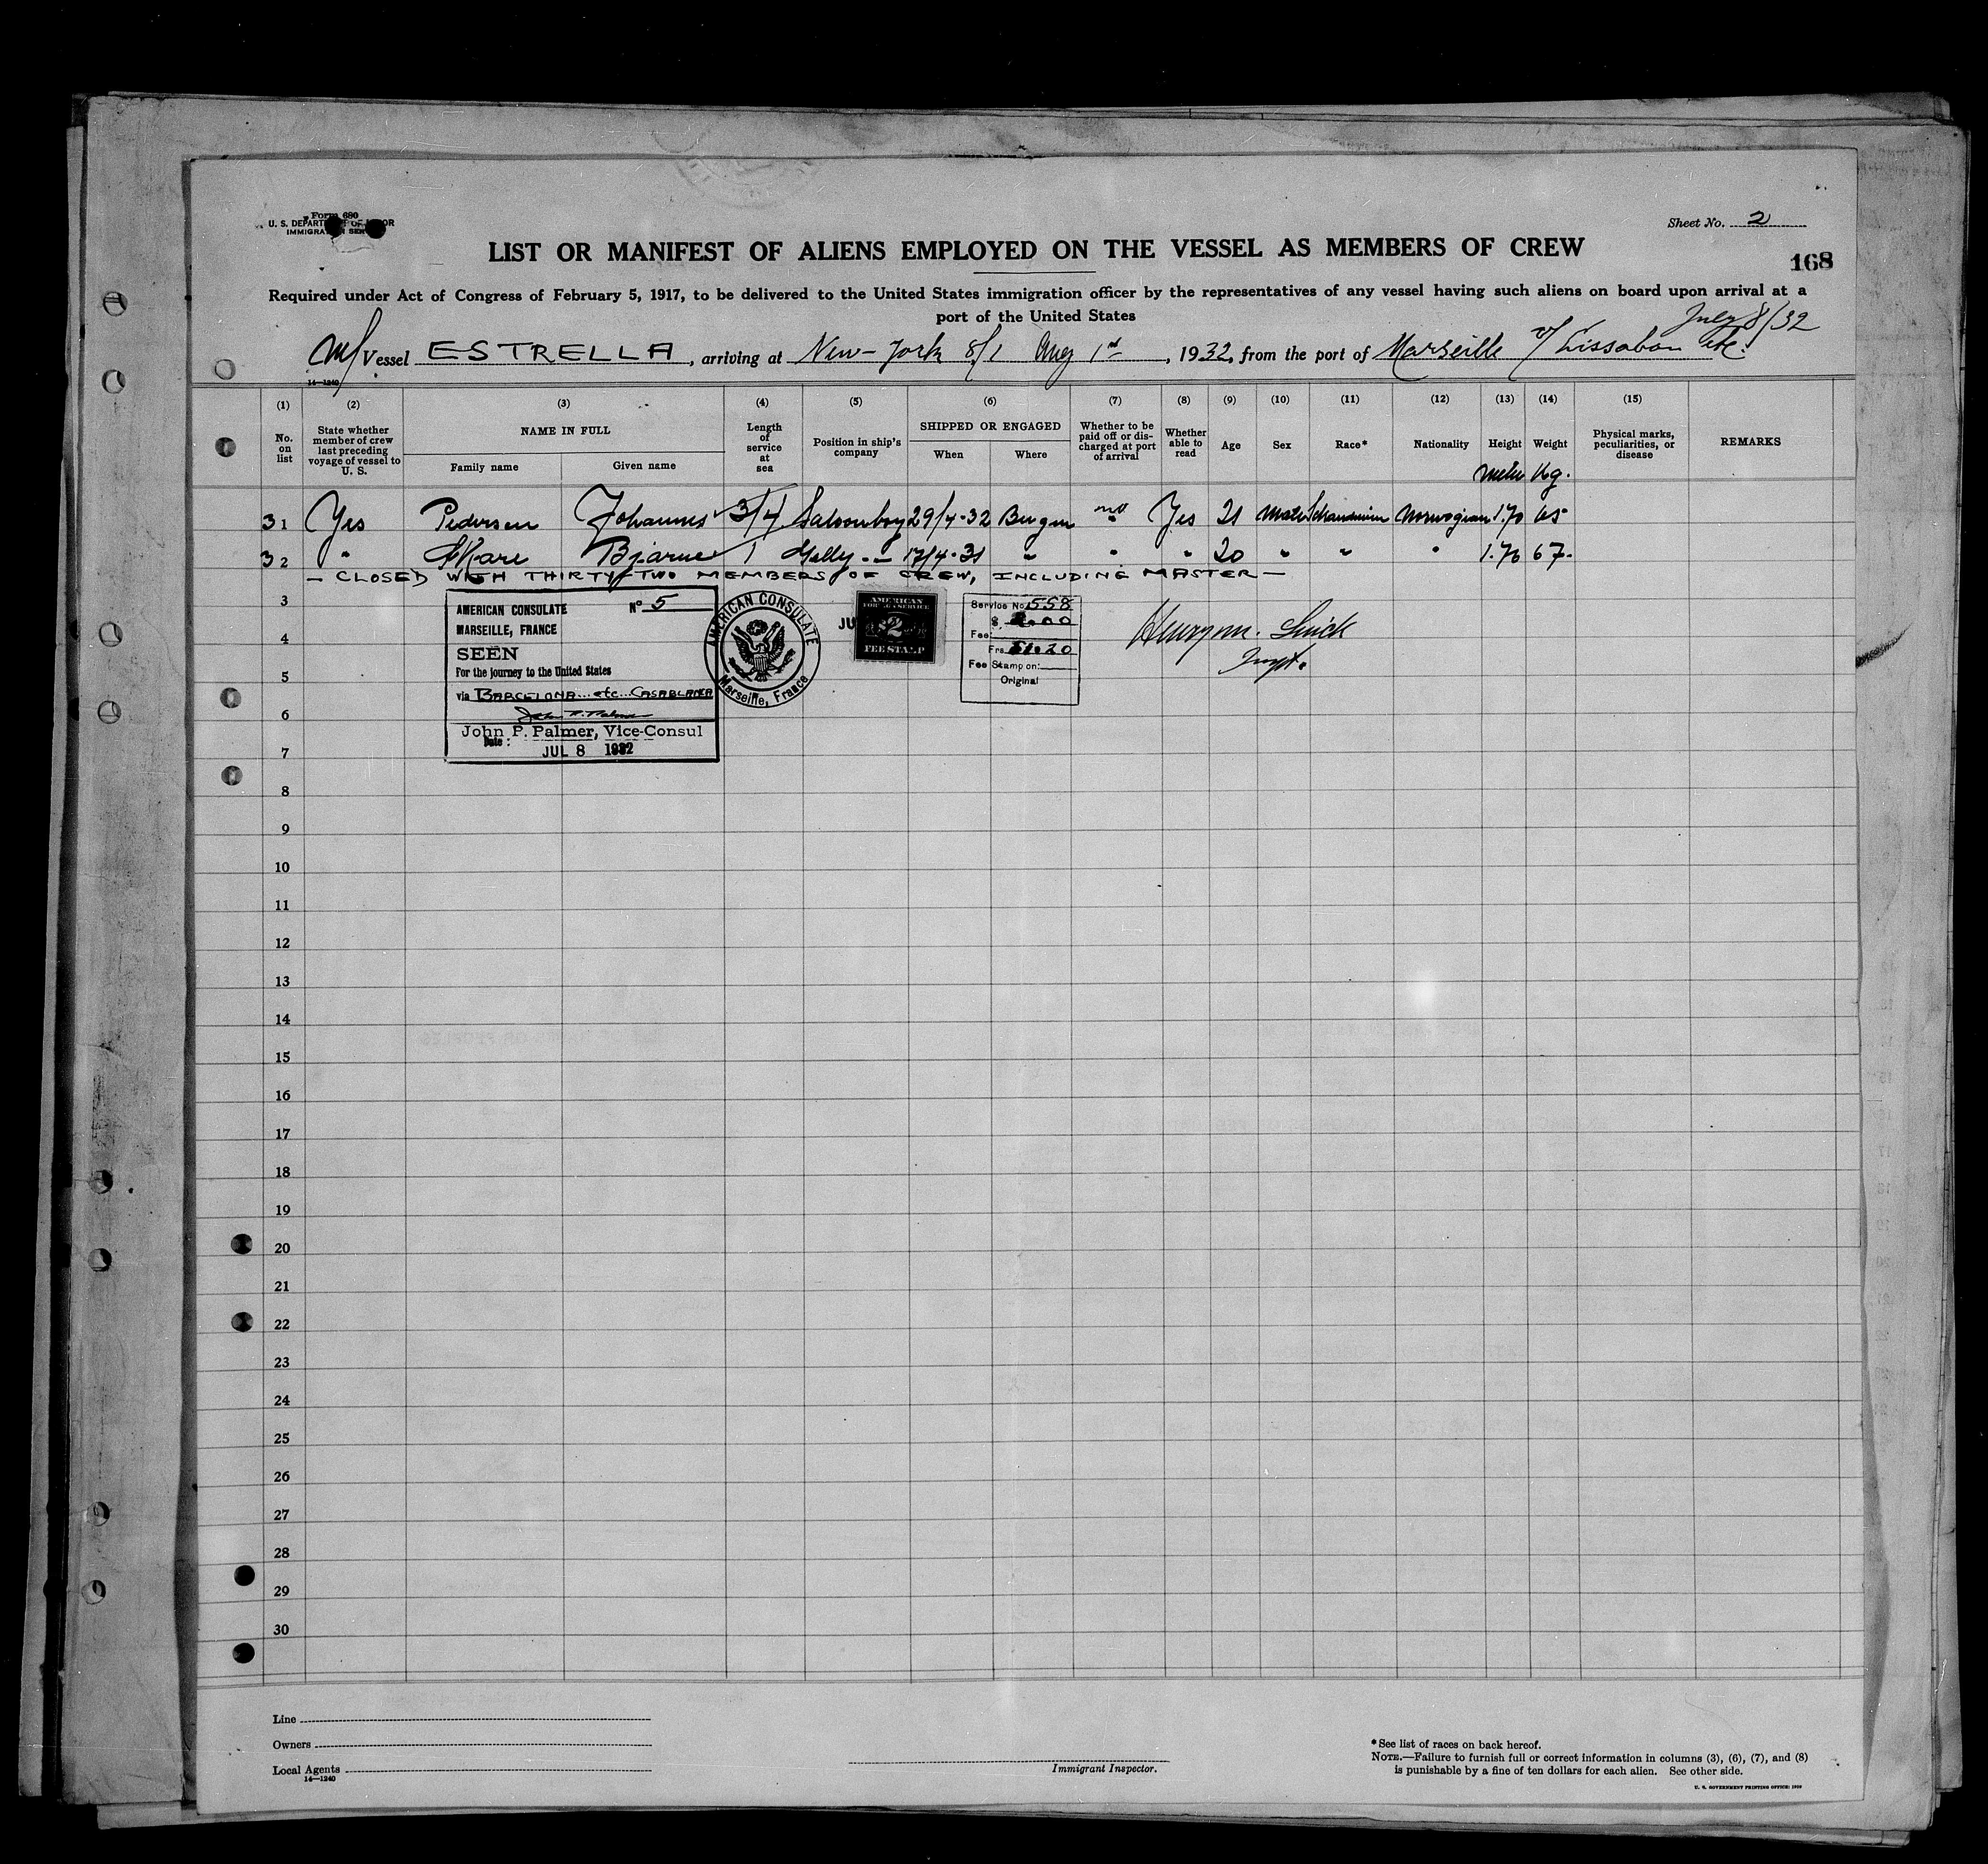 Form 680
U. S. DEPARTMENT OF LABOR
IMMIGRATION SERVICE
Sheet No. 2
LIST OR MANIFEST OF ALIENS EMPLOYED ON THE VESSEL AS MEMBERS OF CREW
168
Required under Act of Congress of February 5, 1917, to be delivered to the United States immigration officer by the representatives of any vessel having such aliens on board upon arrival at a
port of the United States
July 8/32
m/ Vessel ESTRELLA, arriving at New-York 8/1 Aug 1st, 1932, from the port of Marseille v/ Lissabon etc.
14—1240
(1) (2) (3) (4) (5) (6) (7) (8) (9) (10) (11) (12) (13) (14) (15)
No. on list
State whether member of crew last preceding voyage of vessel to U. S.
NAME IN FULL
Family name
Given name
Length of service at sea
Position in ship's company
SHIPPED OR ENGAGED
When
Where
Whether to be paid off or discharged at port of arrival
Whether able to read
Age
Sex
Race*
Nationality
Height
Weight
Physical marks, peculiarities, or disease
REMARKS
Meter Kg.
31 Yes Pedersen Johannes 3/4 Saloonboy 29/4-32 Bergen no Yes 21 Male Scandinavian Norwegian 1.70 65
32 " Skare Bjarne 1 Gally - " - 17/4-31 " " " 20 " " " 1.70 67-
— CLOSED WITH THIRTY-TWO MEMBERS OF CREW, INCLUDING MASTER —
AMERICAN CONSULATE No 5
MARSEILLE, FRANCE
SEEN
For the journey to the United States
via BARCELONA etc CASABLANCA
John P. Palmer
John P. Palmer, Vice-Consul
Date: JUL 8 1932
AMERICAN CONSULATE
Marseille, France
JU
AMERICAN
FOREIGN SERVICE
2
FEE STAMP
Service No. 558
$ 2.00
Fee:
Frs. 51.20
Fee Stamp on:
Original
Inspt.
3
4
5
6
7
8
9
10
11
12
13
14
15
16
17
18
19
20
21
22
23
24
25
26
27
28
29
30
Line
Owners
Local Agents
14—1240
Immigrant Inspector.
*See list of races on back hereof.
NOTE.—Failure to furnish full or correct information in columns (3), (6), (7), and (8)
is punishable by a fine of ten dollars for each alien. See other side.
U. S. GOVERNMENT PRINTING OFFICE: 1929